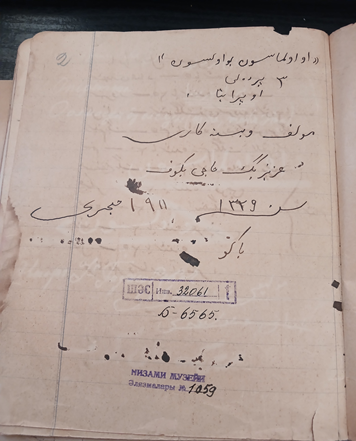 2
«او اولماسون بو اولسون»
٣ پرده‌لی
اوپراتا
مؤلف و بسته‌کاری
عزیر بگ حاجی بکوف
سنه ١٣٢٩ ١٩١١ هجری
باکو
ШЭС Инв. 32061
Б-6565.
НИЗАМИ МУЗЕЙИ
Әлјазмалары № 1059